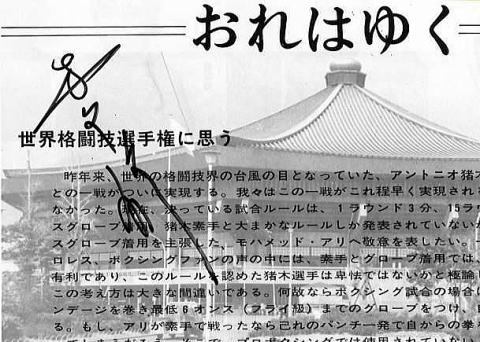 おれはゆく
世界格闘技選手権に思う
昨年来、世界の格闘技界の台風の目となっていた、アントニオ猪木
との一戦がついに実現する。我々はこの一戦がこれ程早く実現される
なかった。現在、決っている試合ルールは、1ラウンド3分、15ラウ
スグローブ着用、猪木素手と大まかなルールしか発表されていないが
スグローブ着用を主張した、モハメッド・アリへ敬意を表したい。一
ロレス、ボクシングファンの声の中には、素手とグローブ着用では、
有利であり、このルールを認めた猪木選手は卑怯ではないかと極論し
この考え方は大きな間違いである。何故ならボクシング試合の場合に
ンデージを巻き最低6オンス(フライ級)までのグローブをつけ、自
る。もし、アリが素手で戦ったなら己れのパンチ一発で自からの拳を